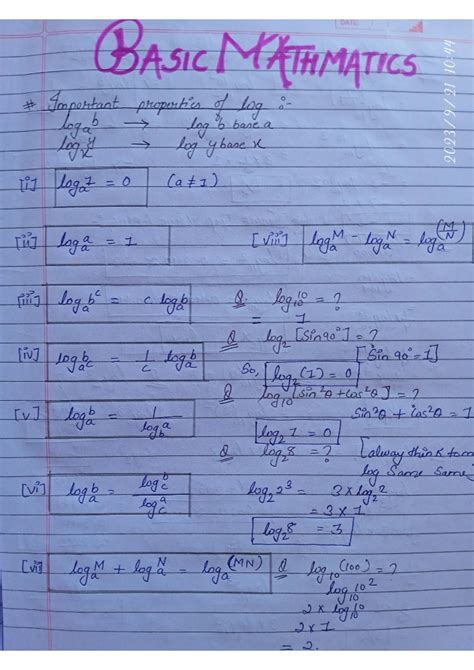 BASIC MATHMATICS
DATE
2023/9/21 10:44
# Important properties of log :-
log_a b → log b base a
log_x y → log y base x
[i] log_a 1 = 0 (a ≠ 1)
[ii] log_a a = 1
[viii] log_a M - log_a N = log_a (M/N)
[iii] log_a b^c = c log_a b
Q. log_10 10 = ?
= 1
Q log_2 [Sin 90°] = ?
[Sin 90° = 1]
[iv] log_{a^c} b = 1/c log_a b
So, log_2 (1) = 0
Q log_10 [Sin²θ + Cos²θ] = ?
Sin²θ + Cos²θ = 1
[v] log_a b = 1/log_b a
log_2 1 = 0
Q log_2 8 = ?
[alway think to ma
log Same Same]
[vi] log_a b = log_c b / log_c a
log_2 2^3 = 3 × log_2 2
= 3 × 1
log_2 8 = 3
[vii] log_a M + log_a N = log_a (MN)
Q log_10 (100) = ?
log_10 10^2
2 × log_10 10
2 × 1
= 2.